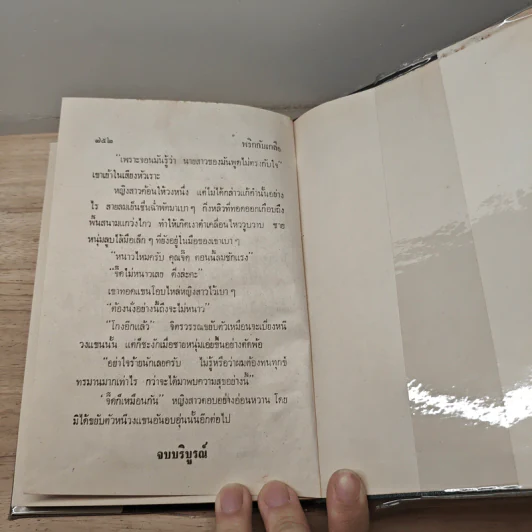 ๗๕๒
พริกกับเกลือ
"เพราะจอมมันรู้ว่า นายสาวของมันพูดไม่ตรงกับใจ"
เขาเย้าในเสียงหัวเราะ
หญิงสาวค้อนให้วงหนึ่ง แต่ไม่ได้กล่าวแก้คำนั้นอย่าง
ไร สายลมเย็นชื่นฉ่ำพัดมาเบา ๆ กิ่งหลิวที่ทอดออกเกือบถึง
พื้นสนามแกว่งไกว ทำให้เกิดเงาดำเคลื่อนไหววูบวาบ ชาย
หนุ่มลูบไล้มือเล็ก ๆ ที่ยังอยู่ในมือของเขาเบา ๆ
"หนาวไหมครับ คุณจี๊ด ตอนนี้ลมชักแรง"
"จี๊ดไม่หนาวเลย ดึงล่ะคะ"
เขาทอดแขนโอบไหล่หญิงสาวไว้เบา ๆ
"ต้องนั่งอย่างนี้ถึงจะไม่หนาว"
"โกงอีกแล้ว" จิตรวรรณขยับตัวเหมือนจะเบี่ยงหนี
วงแขนนั้น แต่ก็ชะงักเมื่อชายหนุ่มเอ่ยขึ้นอย่างตัดพ้อ
"อย่าใจร้ายนักเลยครับ ไม่รู้หรือว่าผมต้องทนทุกข์
ทรมานมากเท่าไร กว่าจะได้มาพบความสุขอย่างนี้"
"จี๊ดก็เหมือนกัน" หญิงสาวตอบอย่างอ่อนหวาน โดย
มิได้ขยับตัวหนีวงแขนอันอบอุ่นนั้นอีกต่อไป
จบบริบูรณ์